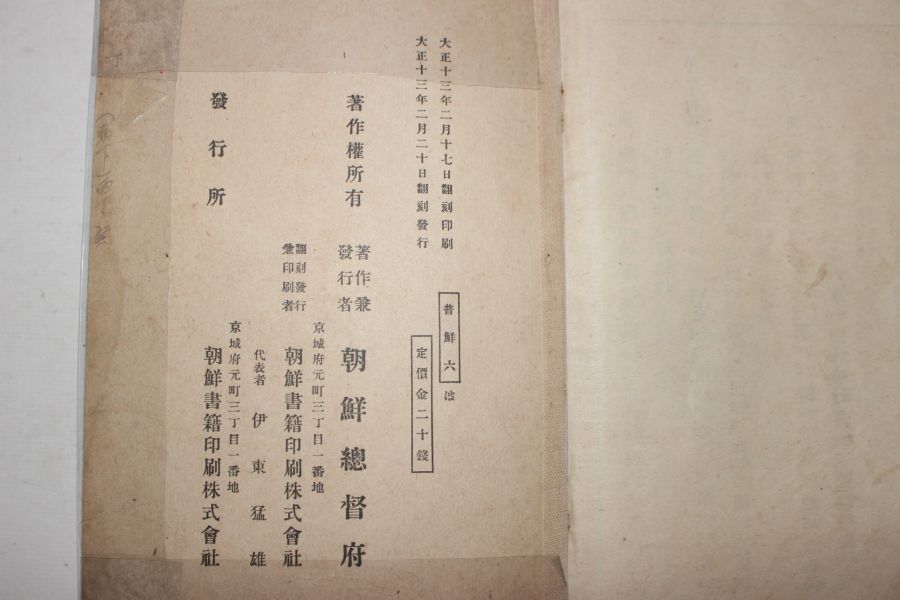 大正十三年二月十七日翻刻印刷
大正十三年二月二十日翻刻發行
普鮮六
定價金二十錢
著作權所有
著作兼
發行者
朝鮮總督府
京城府元町三丁目一番地
翻刻發行
兼印刷者
朝鮮書籍印刷株式會社
代表者 伊東猛雄
京城府元町三丁目一番地
發行所
朝鮮書籍印刷株式會社